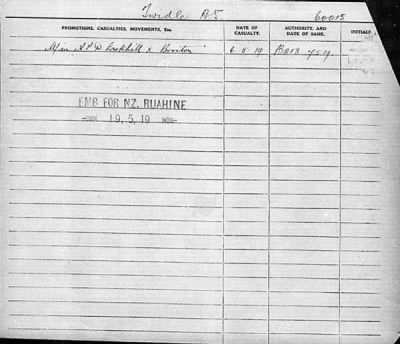 Twidle A J 60015
PROMOTIONS, CASUALTIES, MOVEMENTS, Etc. DATE OF CASUALTY. AUTHORITY, AND DATE OF SAME. INITIALS
6.5.19 7.5.19
EMB FOR NZ. RUAHINE
19.5.19